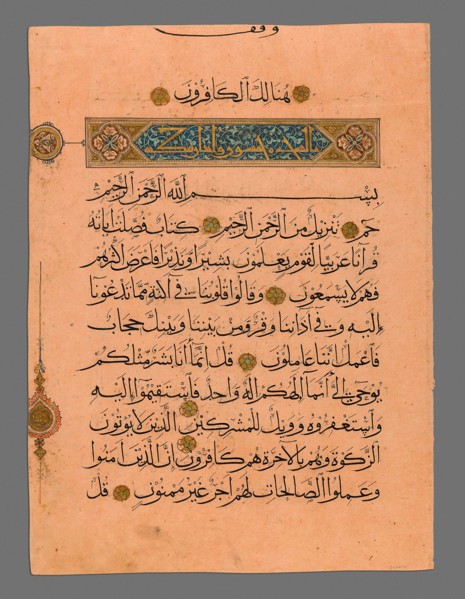 وقف
هُنَالِكَ الْكَافِرُونَ
بِسْمِ اللَّهِ الرَّحْمَنِ الرَّحِيمِ
حم تَنْزِيلٌ مِنَ الرَّحْمَنِ الرَّحِيمِ كِتَابٌ فُصِّلَتْ آيَاتُهُ
قُرْآنًا عَرَبِيًّا لِقَوْمٍ يَعْلَمُونَ بَشِيرًا وَنَذِيرًا فَأَعْرَضَ أَكْثَرُهُمْ
فَهُمْ لَا يَسْمَعُونَ وَقَالُوا قُلُوبُنَا فِي أَكِنَّةٍ مِمَّا تَدْعُونَا
إِلَيْهِ وَفِي آذَانِنَا وَقْرٌ وَمِنْ بَيْنِنَا وَبَيْنِكَ حِجَابٌ
فَاعْمَلْ إِنَّنَا عَامِلُونَ قُلْ إِنَّمَا أَنَا بَشَرٌ مِثْلُكُمْ
يُوحَى إِلَيَّ أَنَّمَا إِلَهُكُمْ إِلَهٌ وَاحِدٌ فَاسْتَقِيمُوا إِلَيْهِ
وَاسْتَغْفِرُوهُ وَوَيْلٌ لِلْمُشْرِكِينَ الَّذِينَ لَا يُؤْتُونَ
الزَّكَوةَ وَهُمْ بِالْآخِرَةِ هُمْ كَافِرُونَ إِنَّ الَّذِينَ آمَنُوا
وَعَمِلُوا الصَّالِحَاتِ لَهُمْ أَجْرٌ غَيْرُ مَمْنُونٍ قُلْ